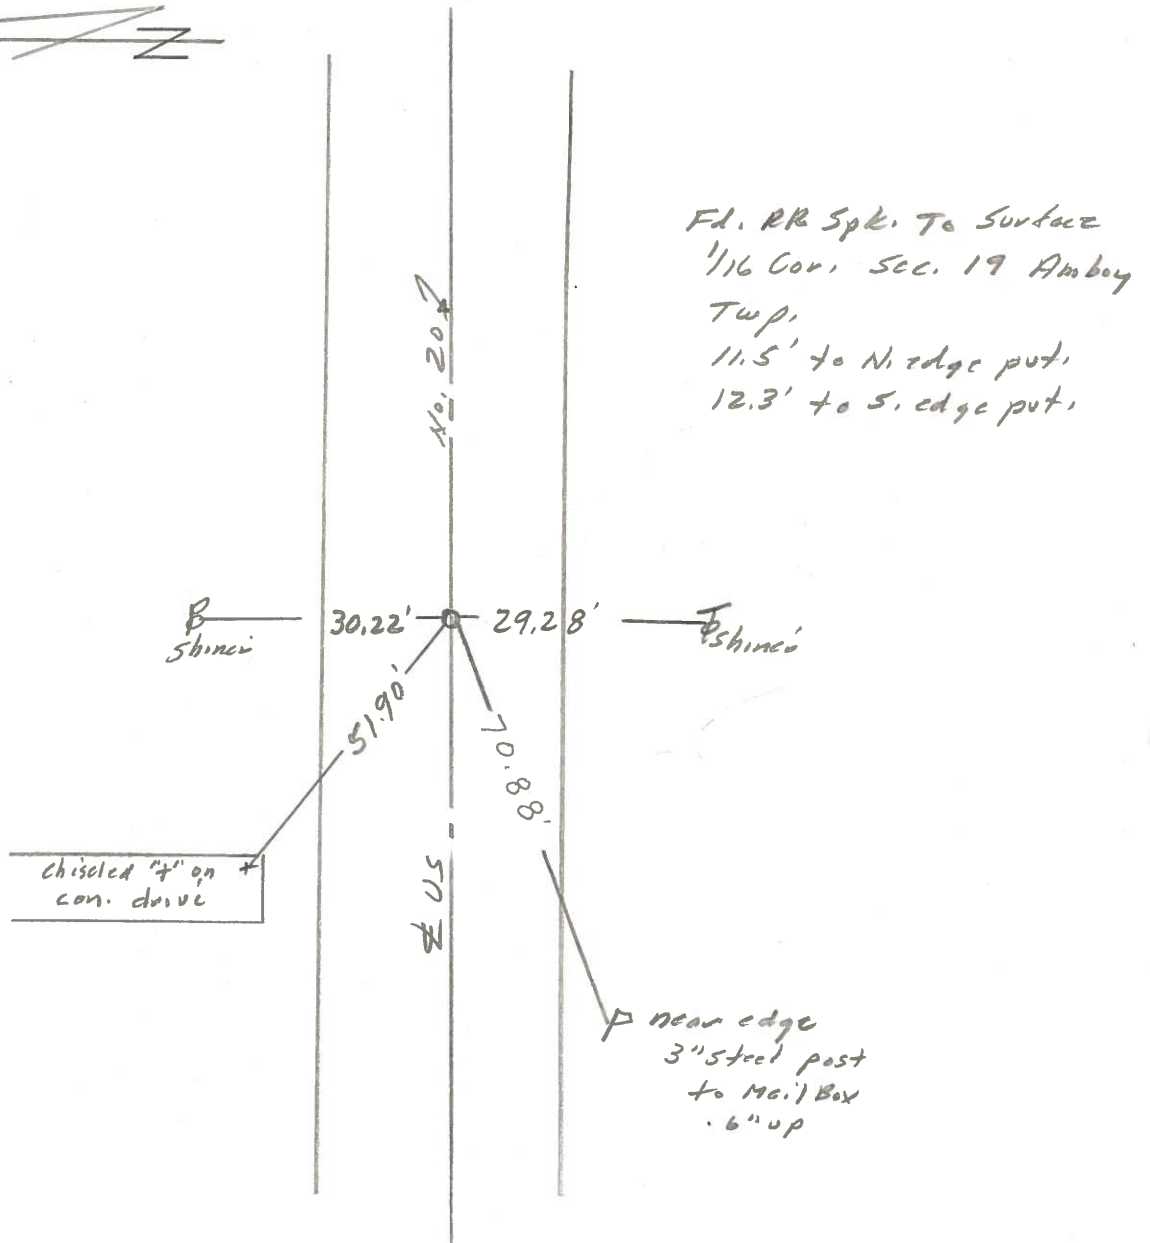 N
Fd. RR Spk. To Surface
1/16 Cor. Sec. 19 Amboy
Twp.
11.5' to N. edge pvt.
12.3' to S. edge pvt.
℄ US No. 20
30.22'
29.28'
Shiner
Shiner
51.90'
70.88'
chiseled "+" on
con. drive
near edge
3" steel post
to Mail Box
.6" up